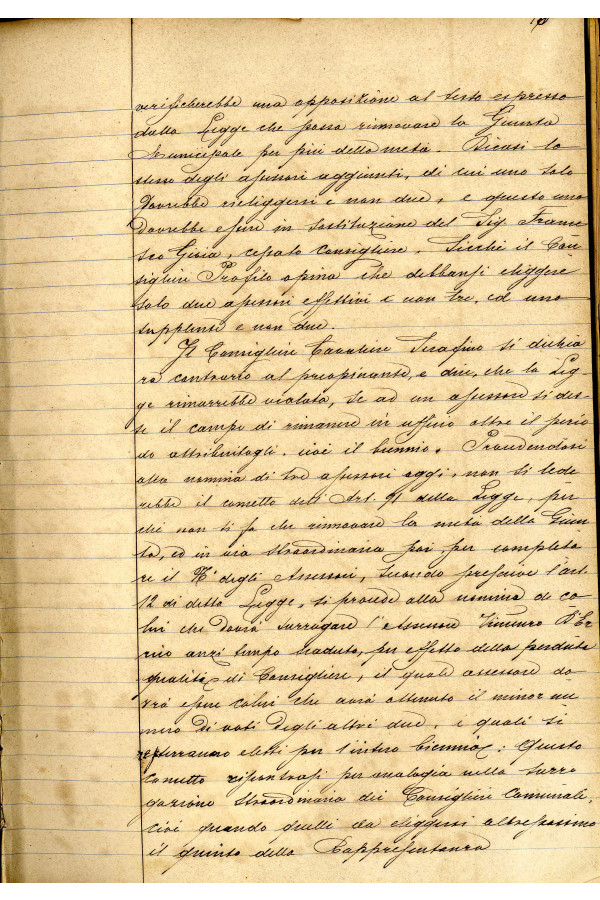 verificherebbe una opposizione al testo espresso
dalla Legge che possa rinnovare la Giunta
Municipale per più della metà. Dicasi lo
stesso degli assessori aggiunti, di cui uno solo
dovrebbe rieliggersi e non due, e questo uno
dovrebbe essere in sostituzione del Sig. France
sco Gioia, cessato Consigliere. Sicchè il Con
sigliere Profilo opina che debbansi eliggere
solo due assessori effettivi e non tre, ed uno
supplente e non due.
Il Consigliere Cavaliere Serafino si dichia
ra contrario al preopinante, e dice, che la Leg
ge rimarrebbe violata, se ad un assessore si des-
se il campo di rimanere in ufficio oltre il perio
do attribuitogli, cioè il biennio. Procedendosi
alla nomina di tre assessori oggi, non si lede
rebbe il concetto dell'Art. 91 della Legge, per
chè non si fa che rinnovare la metà della Giun
ta, ed in via straordinaria poi, per completa
re il N.° degli Assessori, secondo prescrive l'art.
12 di detta Legge, si procede alla nomina di co
lui che dovrà surrogare l'assessore D'Er
rico anzi tempo scaduto, per effetto della perduta
qualità di Consigliere, il quale assessore do
vrà essere colui che avrà ottenuto il minor nu
mero di voti degli altri due, i quali si
riterranno eletti per l'intero biennio: Questo
concetto riscontrasi per analogia nella surro
gazione straordinaria dei Consiglieri Comunali,
cioè quando quelli da eliggersi oltrepassino
il quinto della Rappresentanza